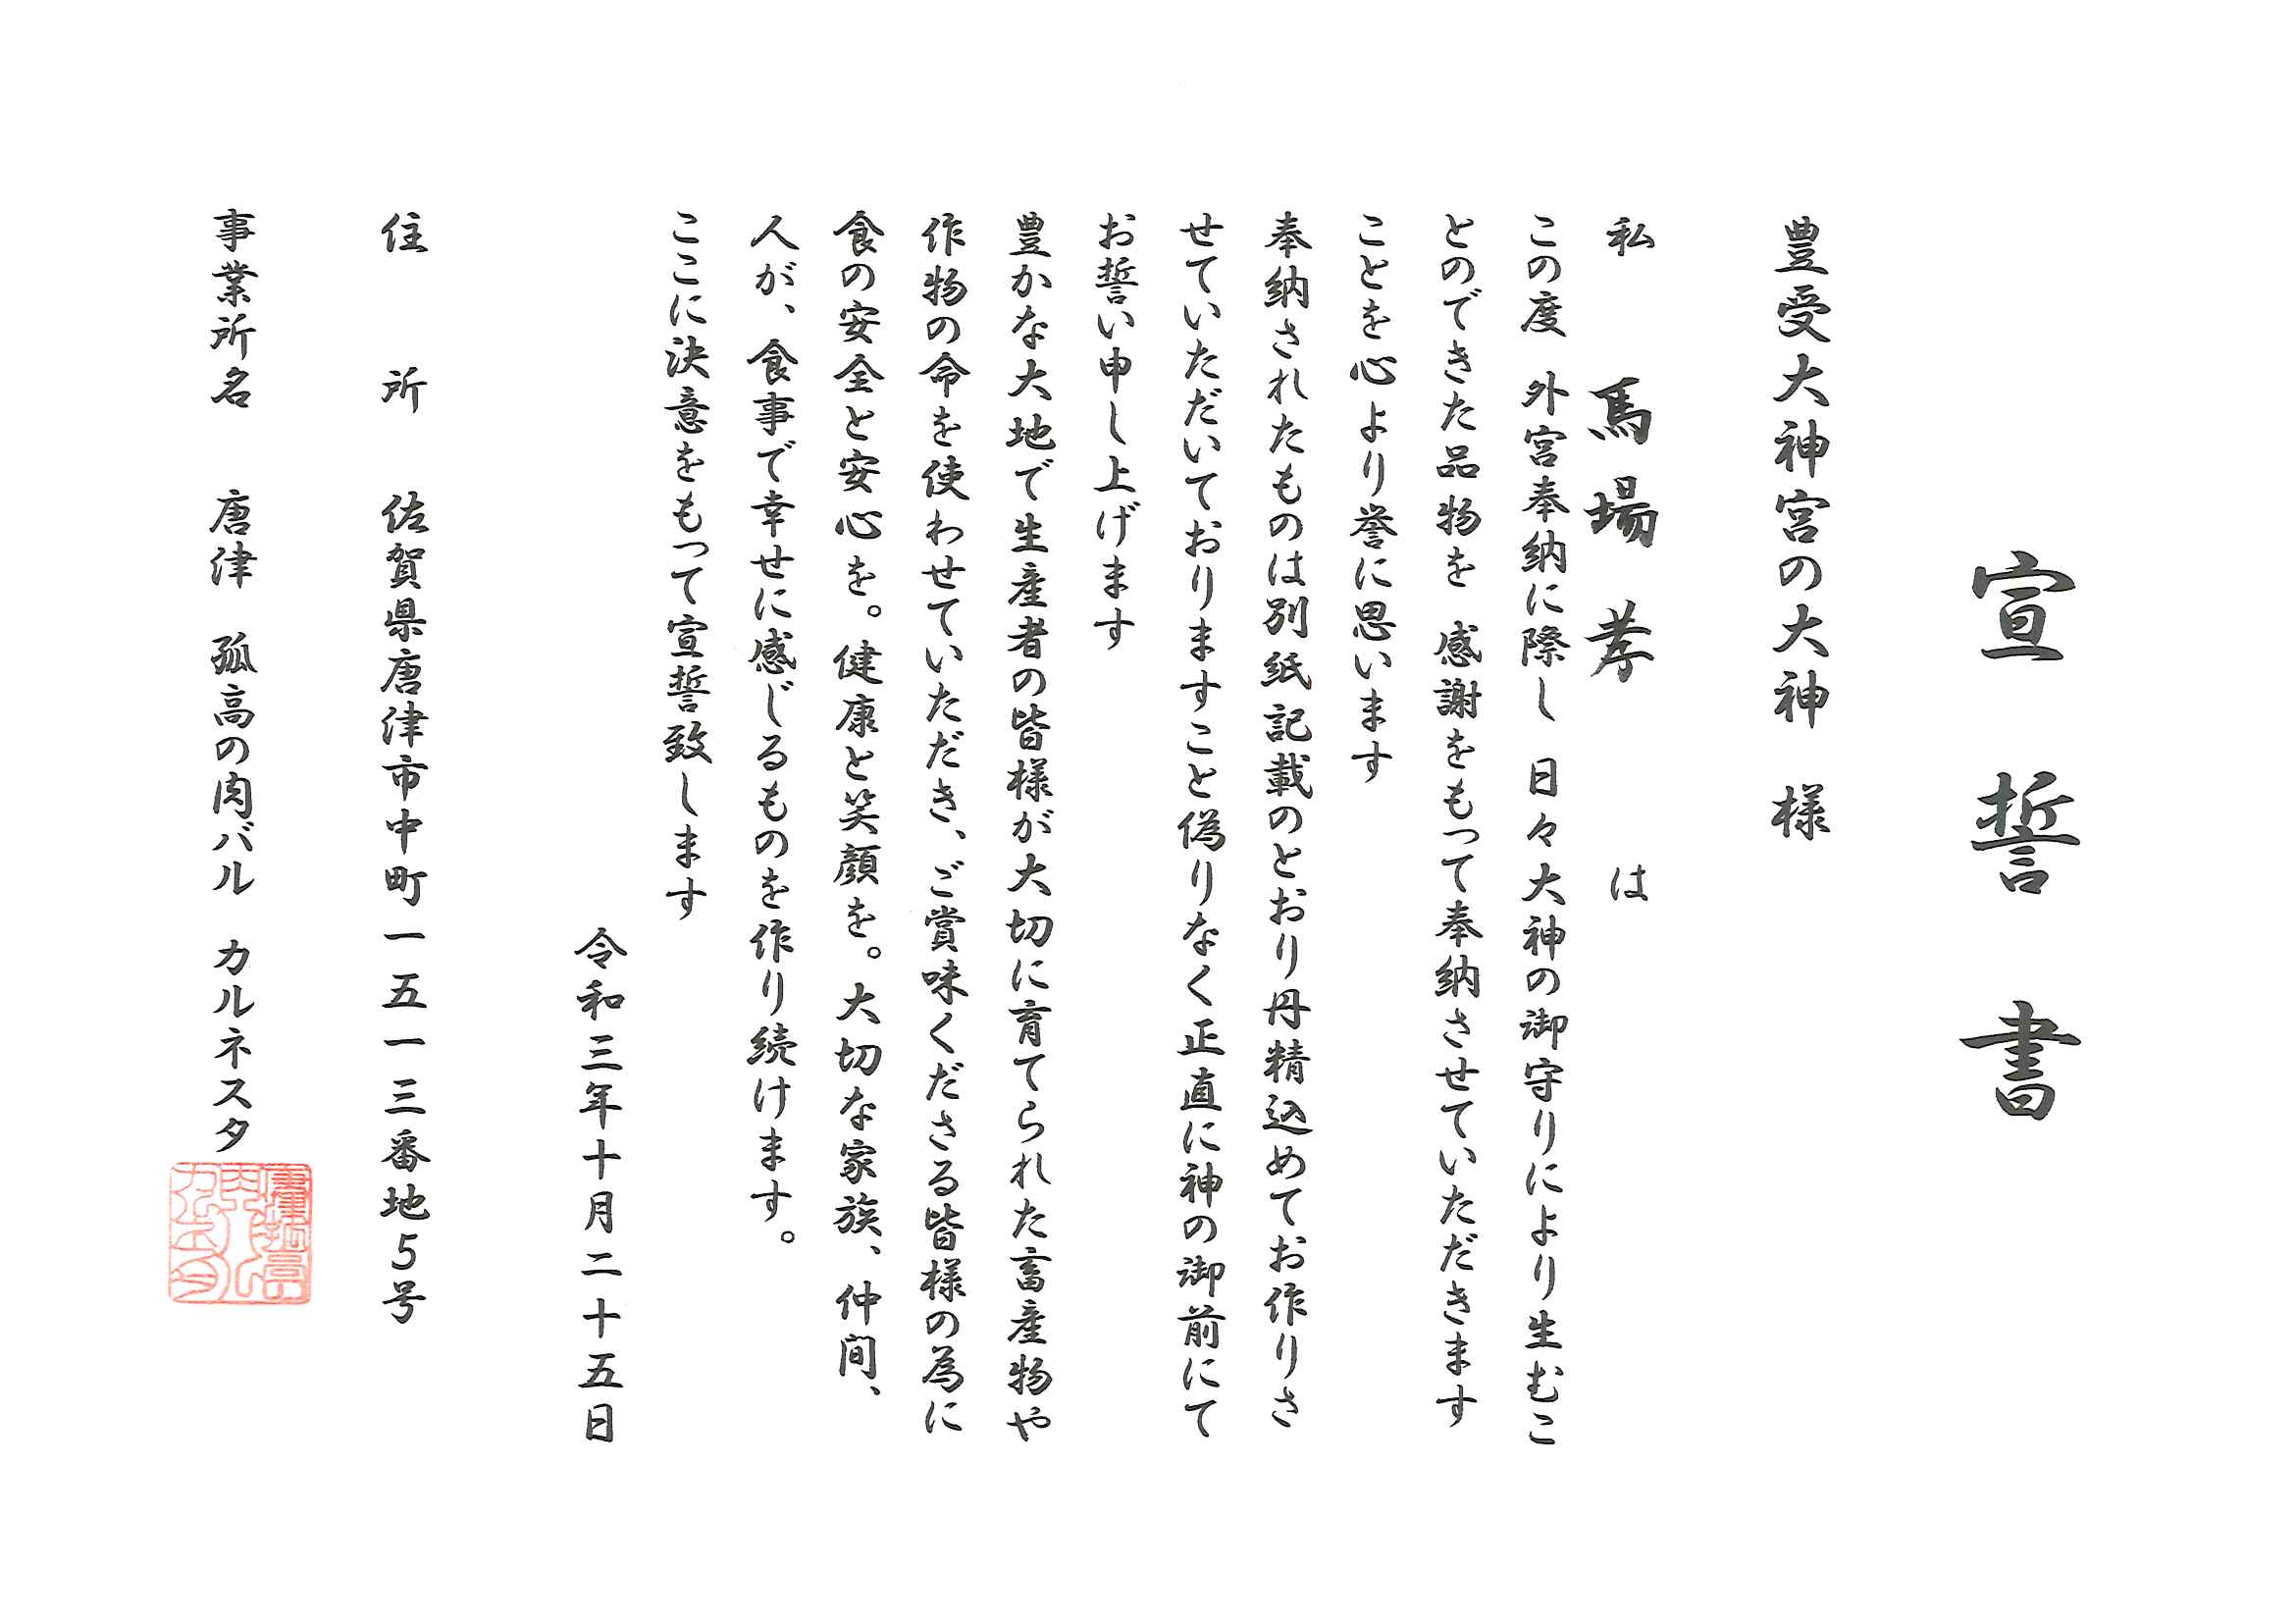 宣誓書
豊受大神宮の大神 様
私 馬場 孝 は
この度 外宮奉納に際し 日々大神の御守りにより生むこ
とのできた品物を 感謝をもって奉納させていただきます
ことを心より誉に思います
奉納されたものは別紙記載のとおり丹精込めてお作りさ
せていただいておりますこと偽りなく正直に神の御前にて
お誓い申し上げます
豊かな大地で生産者の皆様が大切に育てられた畜産物や
作物の命を使わせていただき、ご賞味くださる皆様の為に
食の安全と安心を。健康と笑顔を。大切な家族、仲間、
人が、食事で幸せに感じるものを作り続けます。
ここに決意をもって宣誓致します
令和三年十月二十五日
住 所 佐賀県唐津市中町一五一三番地5号
事業所名 唐津 孤高の肉バル カルネスタ